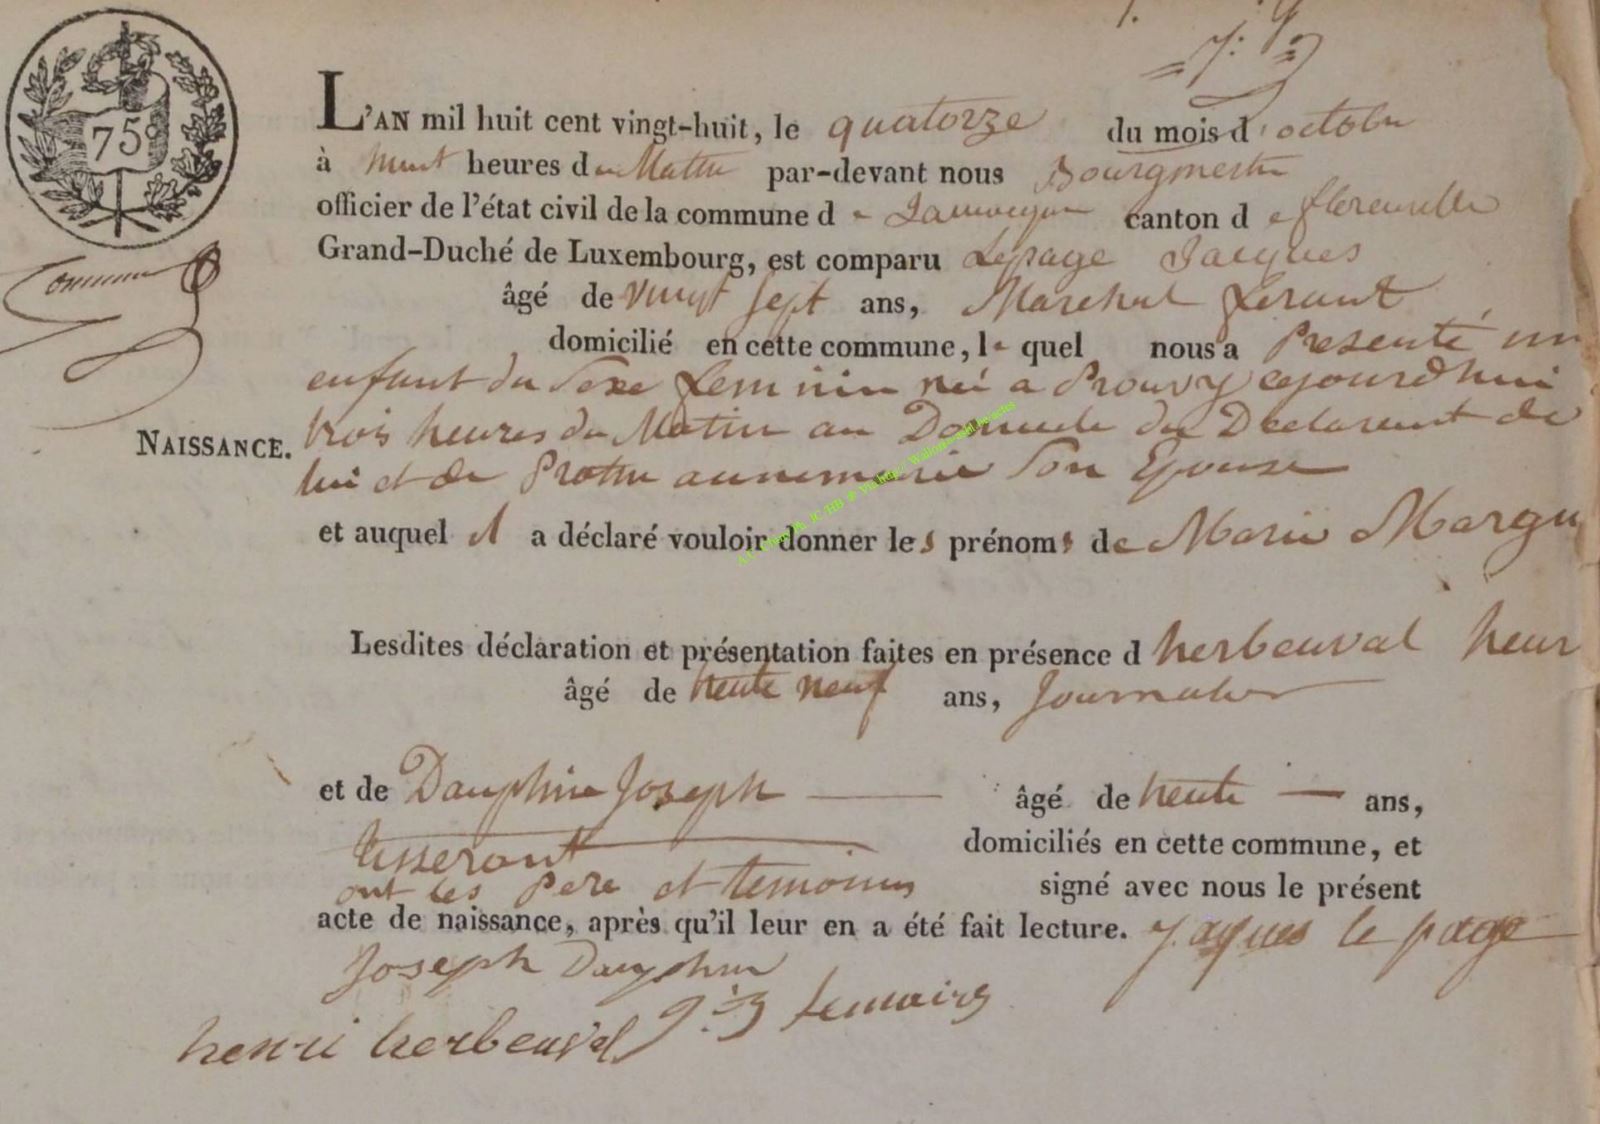 75
L'AN mil huit cent vingt-huit, le quatorze du mois d'octobre
à huit heures du Matin par-devant nous Bourgmestre
officier de l'état civil de la commune de Jamoigne canton de florenville
Grand-Duché de Luxembourg, est comparu Lepage Jacques
âgé de vingt sept ans, Marechal ferant
domicilié en cette commune, le quel nous a Presenté un
enfant du Sexe feminin né a Prouvy cejourdhui
NAISSANCE.
trois heures du Matin au Domicile du Declarent de
lui et de Protin annemarie Son Epouse
et auquel il a déclaré vouloir donner les prénoms de Marie Margu
Lesdites déclaration et présentation faites en présence d herbeuval henr
âgé de trente neuf ans, Journalier
et de Dauphin Joseph âgé de trente ans,
tisserant domiciliés en cette commune, et
ont les Pere et temoins signé avec nous le présent
acte de naissance, après qu'il leur en a été fait lecture. jaques le page
Joseph Dauphin
henri herbeuval